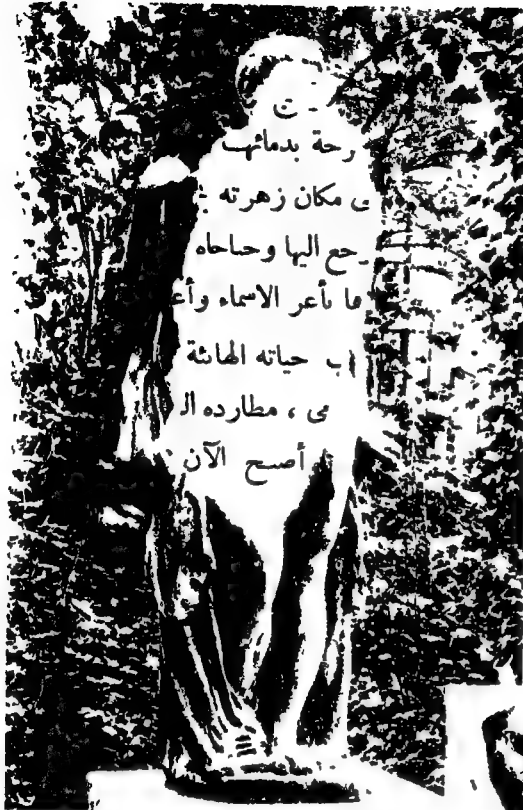 ت
رحة بدمائهـ
ى مكان زهرته
رحع اليها وحناحاه
ها بأعر الاسماء وأعـ
ب حياته الهانئة
مى ، مطارده الـ
أصبح الآن